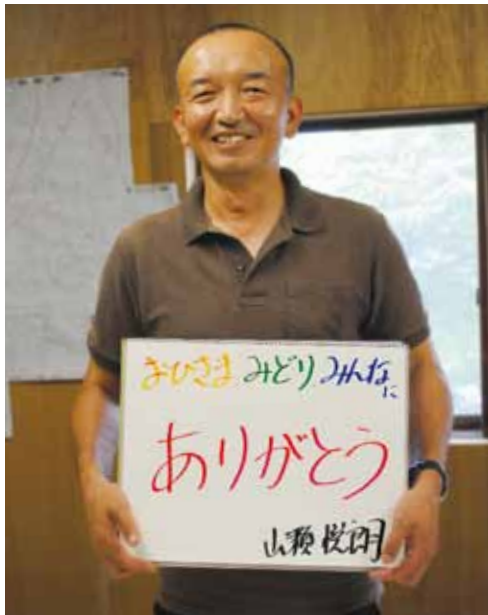 おひさま みどり みんなに
ありがとう
山瀬 悦朗